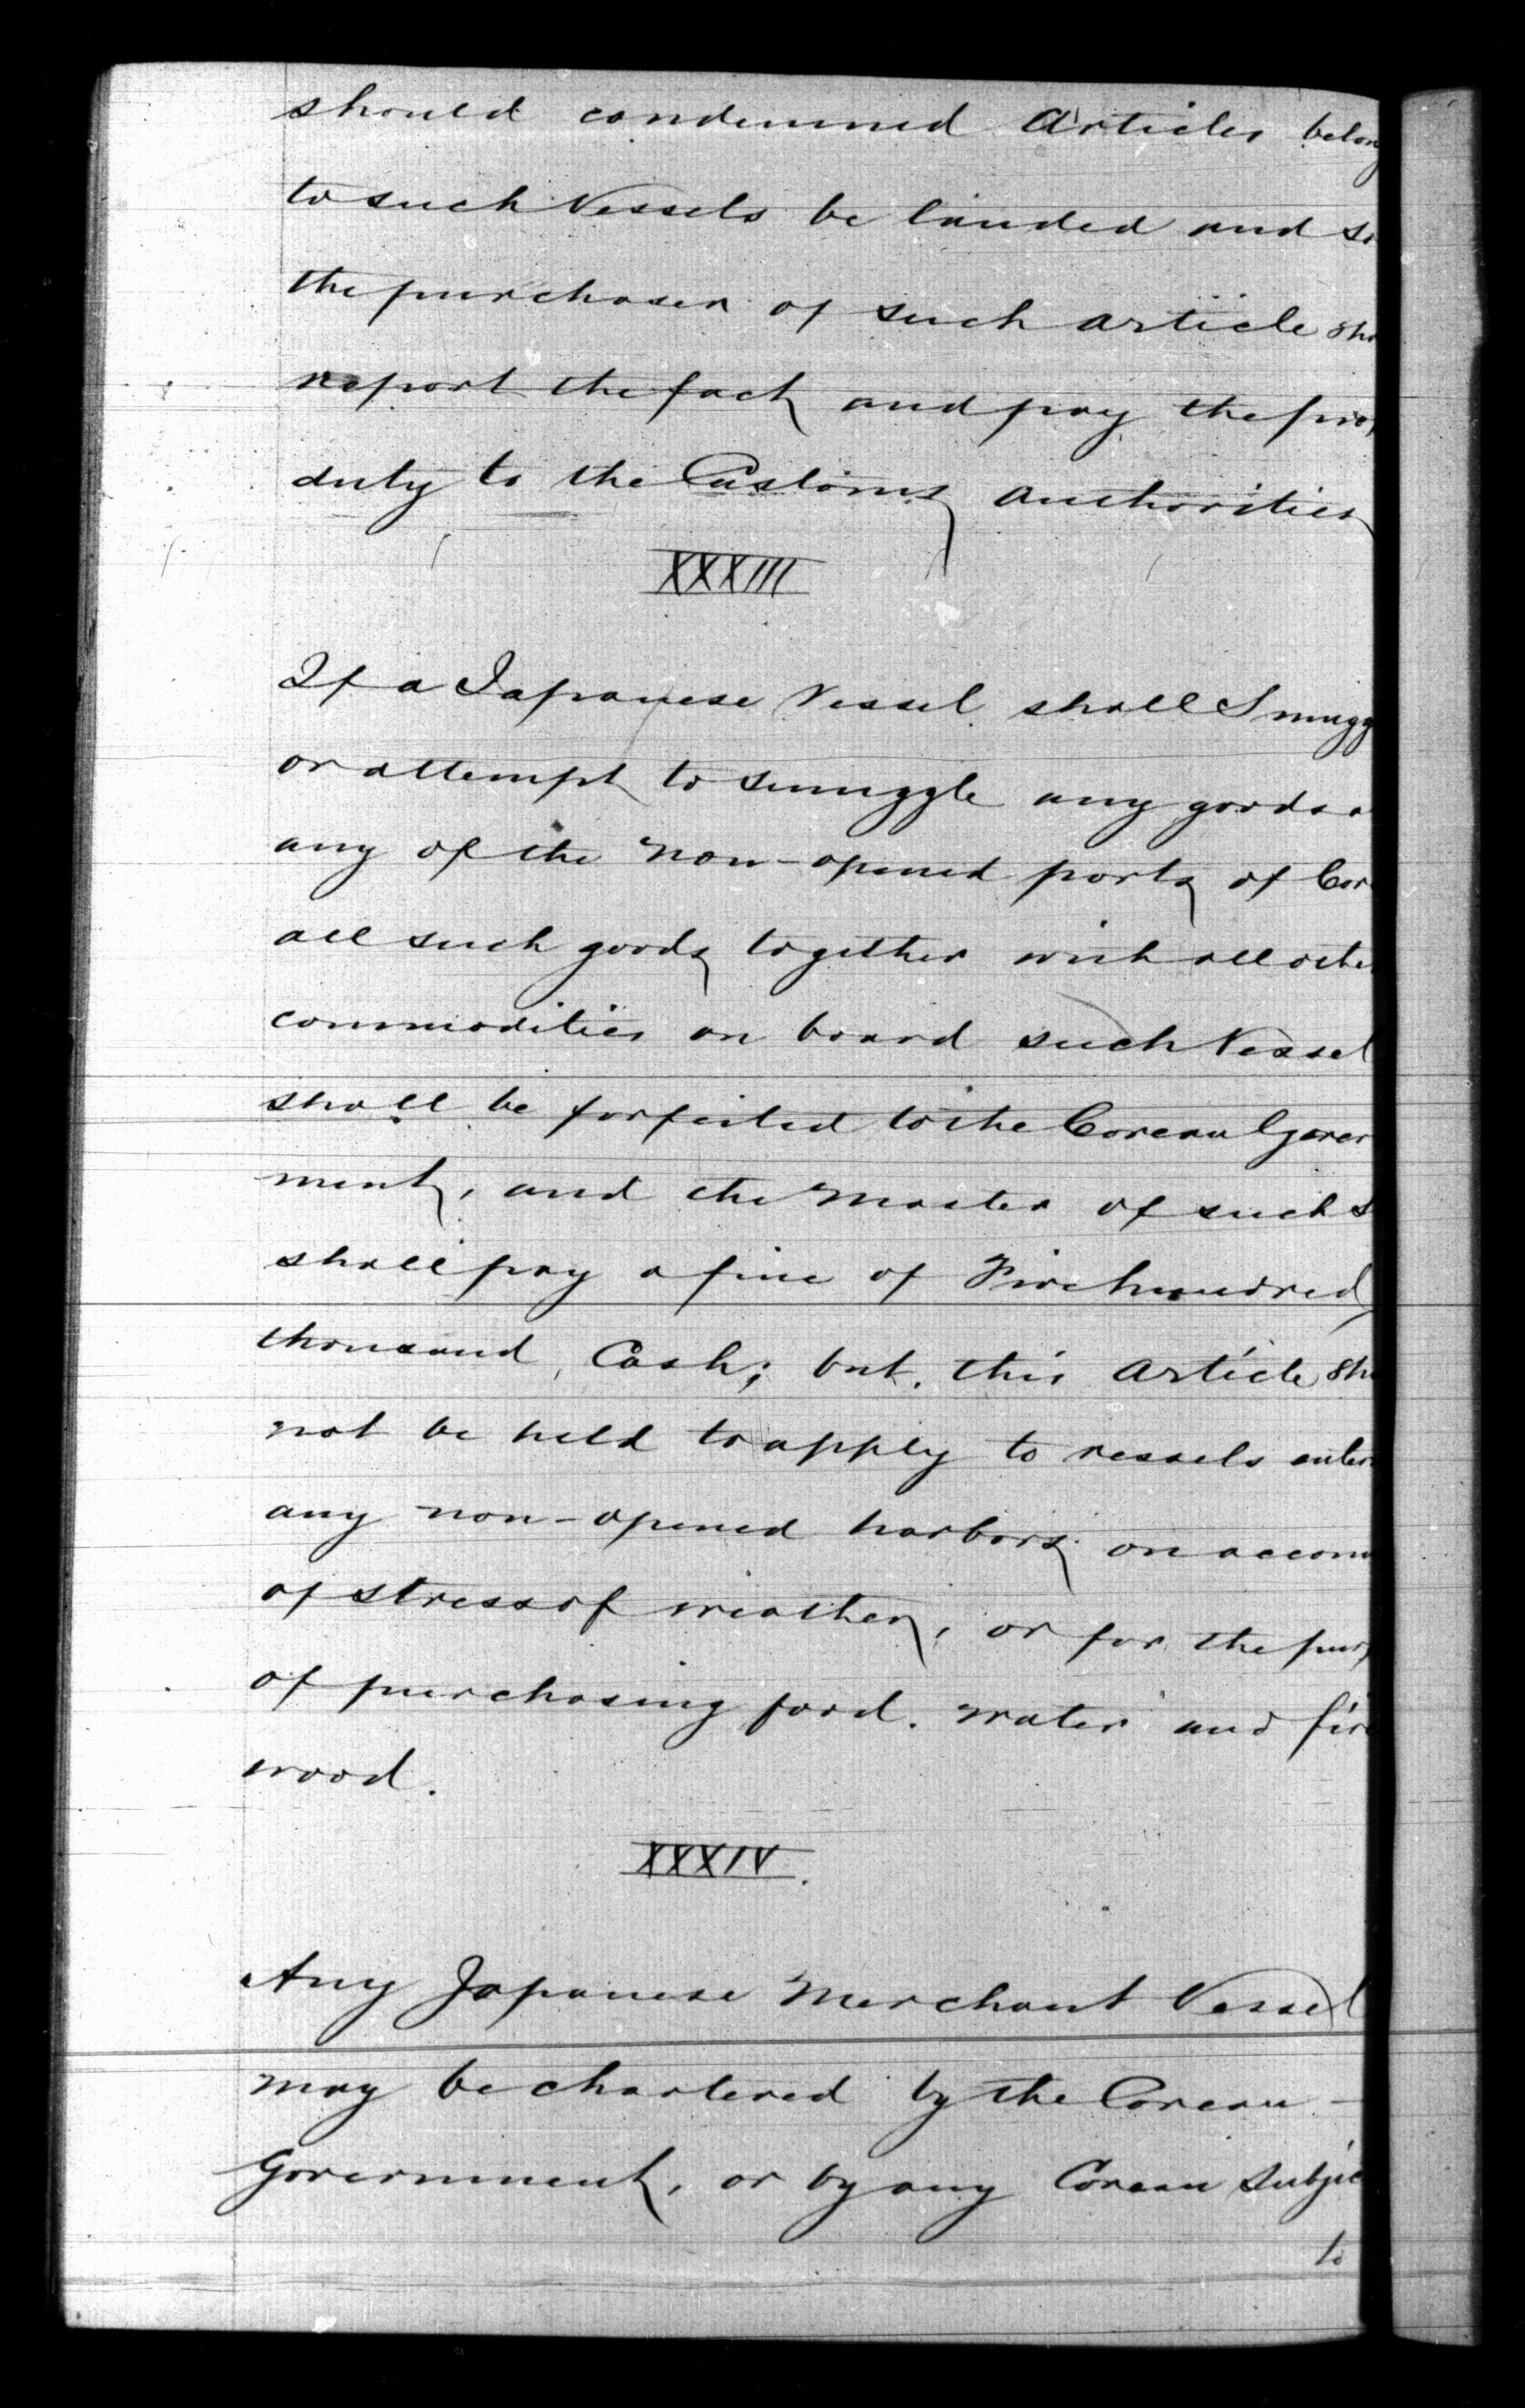 should condemned Articles belong
to such Vessels be landed and so
the purchaser of such article sha
report the fact and pay the prop
duty to the Customs authorities
XXXIII
If a Japanese Vessel shall Smugg
or attempt to smuggle any goods
any of the non-opened ports of Cor
all such goods together with all othe
commodities on board such Vessel
shall be forfeited to the Corean Gover
ment, and the Master of such s
shall pay a fine of Five hundred
thousand Cash; but, this Article sha
not be held to apply to vessels enter
any non-opened harbors on accoun
of stress of weather, or for the purp
of purchasing food. water and fire
wood.
XXXIV.
Any Japanese Merchant Vessel
may be chartered by the Corean
Government, or by any Corean Subjec
to